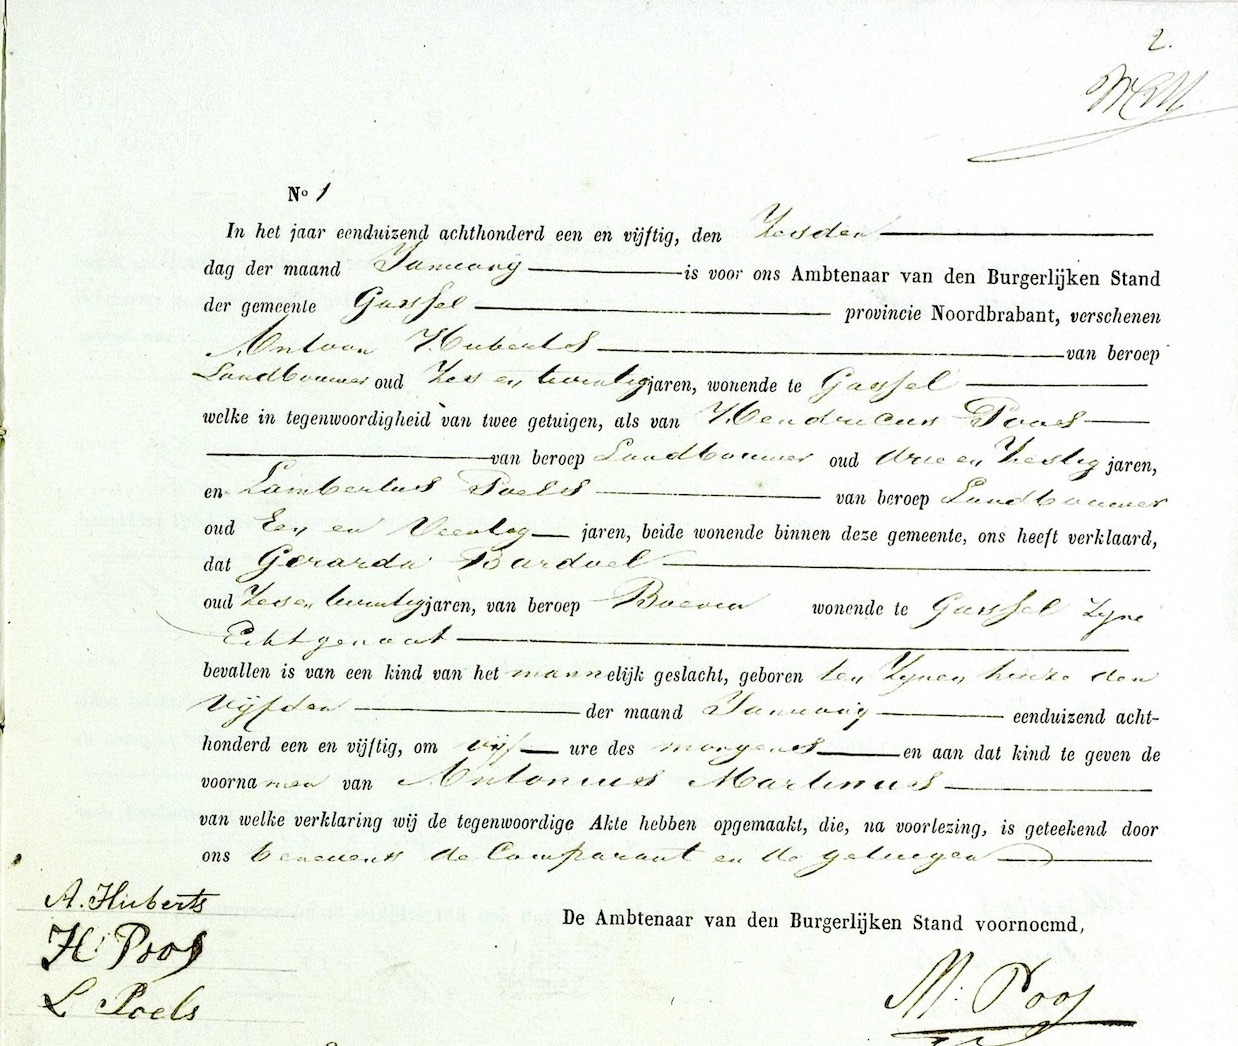 2.
No 1
In het jaar eenduizend achthonderd een en vijftig, den Zesden
dag der maand Januarij is voor ons Ambtenaar van den Burgerlijken Stand
der gemeente Gassel provincie Noordbrabant, verschenen
Antoon Huberts van beroep
Landbouwer oud Zes en twintig jaren, wonende te Gassel
welke in tegenwoordigheid van twee getuigen, als van Hendricus Poos
van beroep Landbouwer oud drie en Zestig jaren,
en Lambertus Poels van beroep Landbouwer
oud Een en Veertig jaren, beide wonende binnen deze gemeente, ons heeft verklaard,
dat Gerarda Bardoel
oud Zes en twintig jaren, van beroep Boerin wonende te Gassel Zyne
Echtgenoot
bevallen is van een kind van het mannelijk geslacht, geboren ten Zynen huize den
Vijfden der maand Januarij eenduizend acht-
honderd een en vijftig, om vijf ure des morgens en aan dat kind te geven de
voornamen van Antonius Martinus
van welke verklaring wij de tegenwoordige Akte hebben opgemaakt, die, na voorlezing, is geteekend door
ons benevens de Comparant en de getuigen
A. Huberts
H: Poos
L Poels
De Ambtenaar van den Burgerlijken Stand voornoemd,
M: Poos